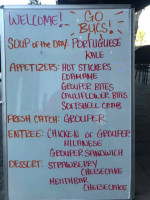 WELCOME! GO BUCS!
SOUP of the DAY: PORTUGUESE
KALE
APPETIZERS: POT STICKERS
EDAMAME
GROUPER BITES
CAULIFLOWER BITES
SOFTSHELL CRAB
FRESH CATCH: GROUPER
ENTREE: CHICKEN or GROUPER
MILANESE
GROUPER SANDWICH
DESSERT: STRAWBERRY
CHEESECAKE
HEATHBAR
CHEESECAKE